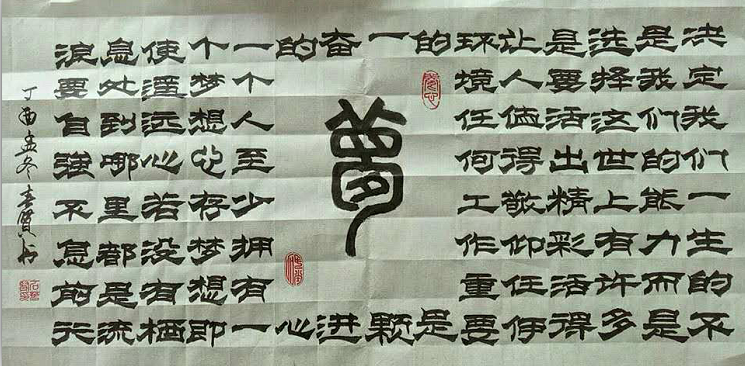 决定我们一生的不
是我们的能力而是
选择这世上有许多
是要活出精彩活得
让人值得敬仰任何
环境任何工作重要
的是
一颗
奋进
的心
夢
一个人至少拥有一
个梦想心存梦想即
使遥远心若没有栖
息处到哪里都是流
浪要自强不息前行
丁酉孟冬